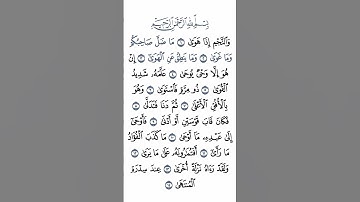 بِسْمِ اللَّهِ الرَّحْمَٰنِ الرَّحِيمِ
وَالنَّجْمِ إِذَا هَوَىٰ ۝ مَا ضَلَّ صَاحِبُكُمْ
وَمَا غَوَىٰ ۝ وَمَا يَنطِقُ عَنِ الْهَوَىٰ ۝ إِنْ
هُوَ إِلَّا وَحْيٌ يُوحَىٰ ۝ عَلَّمَهُ شَدِيدُ
الْقُوَىٰ ۝ ذُو مِرَّةٍ فَاسْتَوَىٰ ۝ وَهُوَ
بِالْأُفُقِ الْأَعْلَىٰ ۝ ثُمَّ دَنَا فَتَدَلَّىٰ ۝
فَكَانَ قَابَ قَوْسَيْنِ أَوْ أَدْنَىٰ ۝ فَأَوْحَىٰ
إِلَىٰ عَبْدِهِ مَا أَوْحَىٰ ۝ مَا كَذَبَ الْفُؤَادُ
مَا رَأَىٰ ۝ أَفَتُمَارُونَهُ عَلَىٰ مَا يَرَىٰ ۝
وَلَقَدْ رَآهُ نَزْلَةً أُخْرَىٰ ۝ عِندَ سِدْرَةِ
الْمُنتَهَىٰ ۝